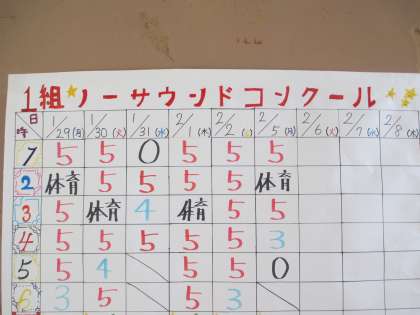 1組ノーサウンドコンクール
日 1/29(月) 1/30(火) 1/31(水) 2/1(木) 2/2(金) 2/5(月) 2/6(火) 2/7(水) 2/8(木)
時
1 5 5 0 5 5 5
2 体育 5 5 5 5 体育
3 5 体育 4 体育 5 5
4 5 5 5 5 5 3
5 5 4 5 5 0
6 3 5 5 3